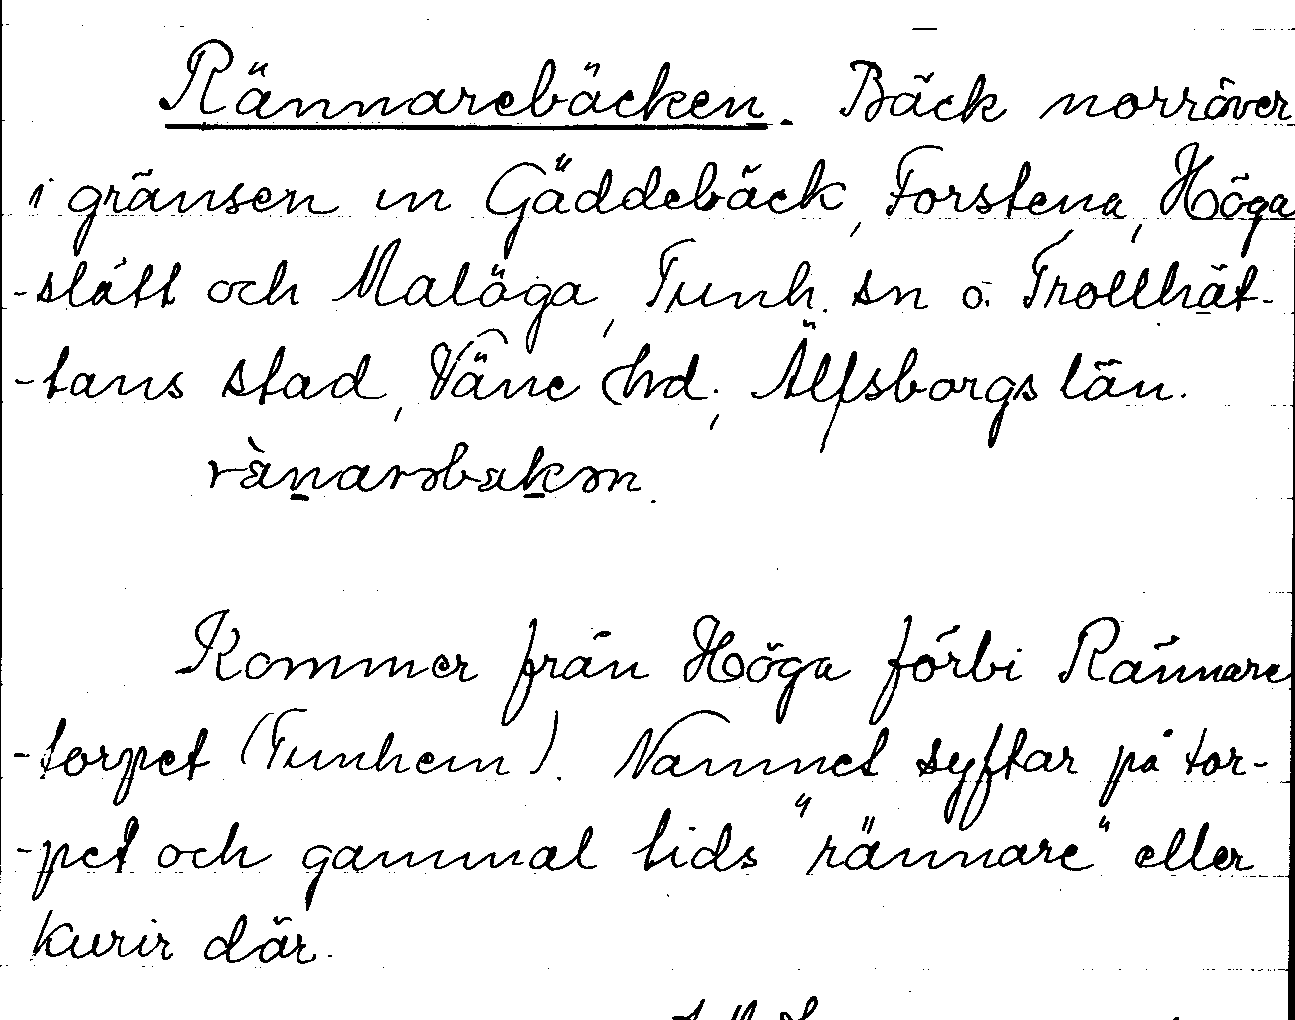 Rännarebäcken. Bäck norröver
i gränsen m Gäddebäck, Forstena, Höga
-slätt och Malöga, Tunh. sn o. Trollhät-
-tans stad, Väne hd; Älfsborgs län.
rànarəbäkən.
Kommer från Höga förbi Rännare
-torpet (Tunhem). Namnet syftar på tor-
-pet och gammal tids "rännare" eller
kurir där.